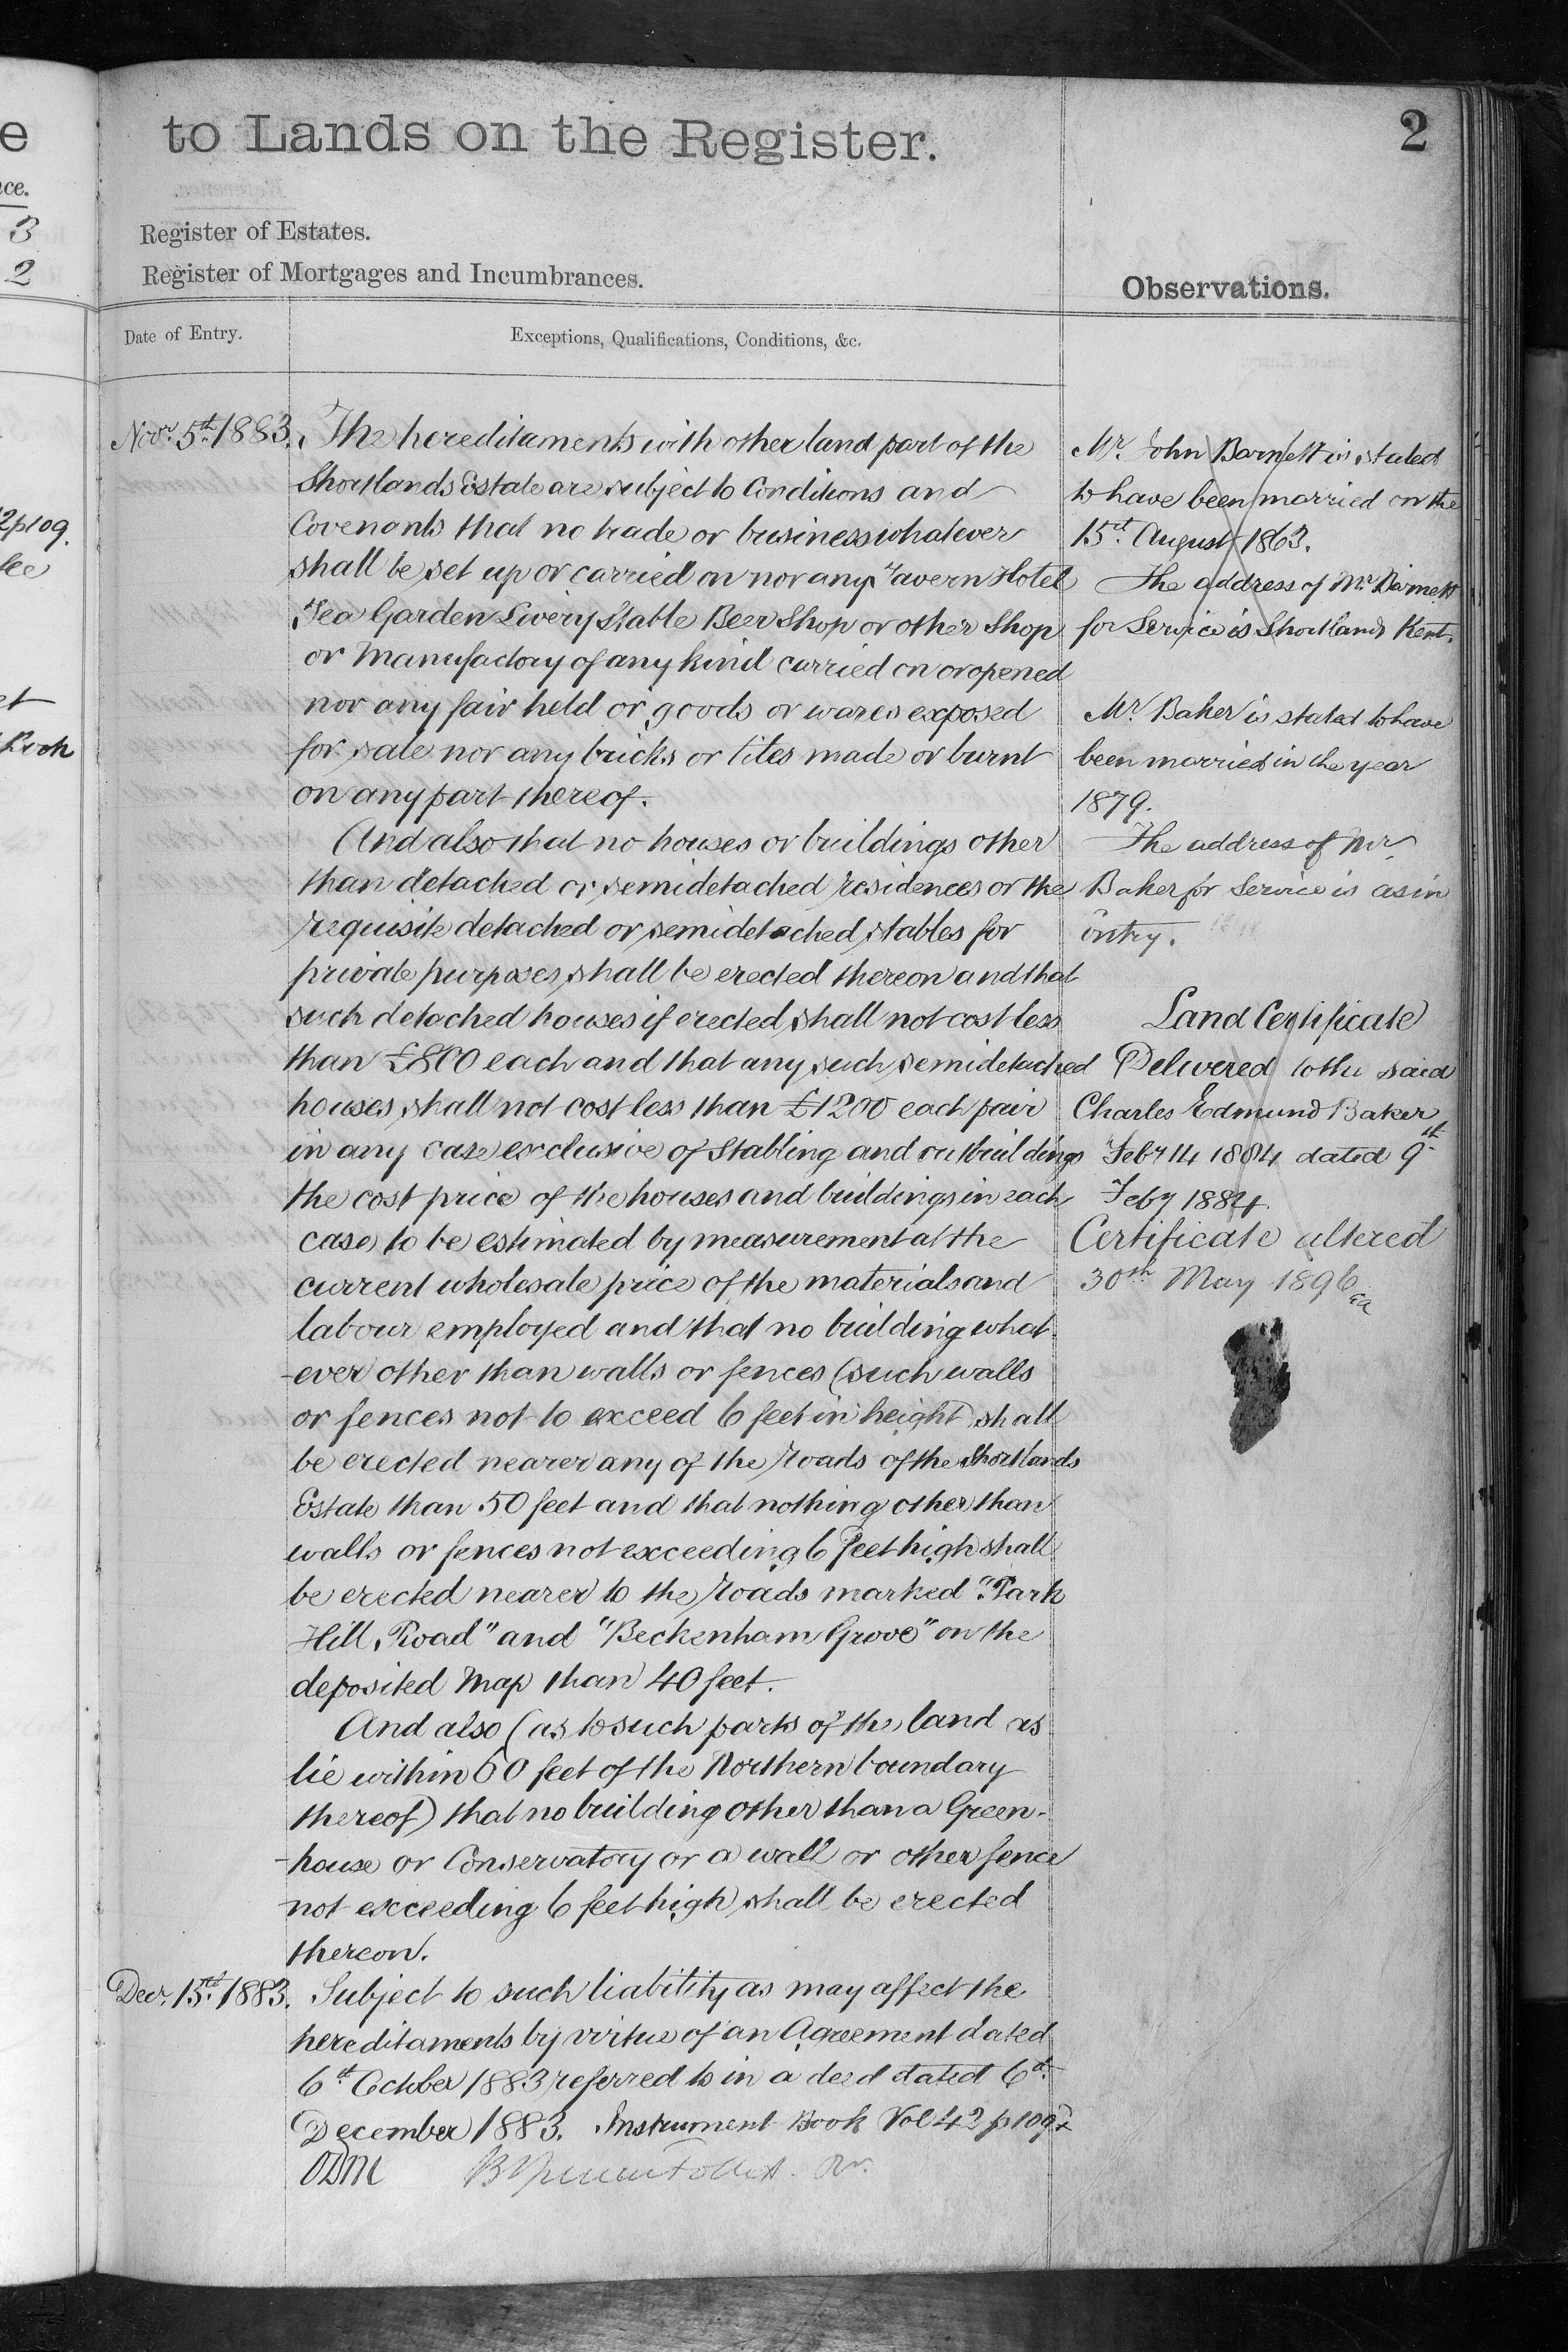 e
to Lands on the Register.
2
ce.
3
2
Register of Estates.
Register of Mortgages and Incumbrances.
Observations.
Date of Entry.
Exceptions, Qualifications, Conditions, &c.
Novr. 5th. 1883.
The hereditaments with other land part of the
Shortlands Estate are subject to Conditions and
Covenants that no trade or business whatever
shall be set up or carried on nor any Tavern Hotel
Tea Garden Livery Stable Beer Shop or other Shop
or Manufactory of any kind carried on or opened
nor any fair held or goods or wares exposed
for sale nor any bricks or tiles made or burnt
on any part thereof.
And also that no houses or buildings other
than detached or semidetached residences or the
requisite detached or semidetached stables for
private purposes shall be erected thereon and that
such detached houses if erected shall not cost less
than £800 each and that any such semidetached
houses shall not cost less than £1200 each pair
in any case exclusive of Stabling and outbuildings
the cost price of the houses and buildings in each
case to be estimated by measurement at the
current wholesale price of the materials and
labour employed and that no building what-
-ever other than walls or fences (such walls
or fences not to exceed 6 feet in height) shall
be erected nearer any of the Roads of the Shortlands
Estate than 50 feet and that nothing other than
walls or fences not exceeding 6 feet high shall
be erected nearer to the Roads marked "Park
Hill Road" and "Beckenham Grove" on the
deposited Map than 40 feet.
And also (as to such parts of the land as
lie within 60 feet of the Northern boundary
thereof) that no building other than a Green-
-house or Conservatory or a wall or other fence
not exceeding 6 feet high shall be erected
thereon.
Decr. 13th. 1883.
Subject to such liability as may affect the
hereditaments by virtue of an Agreement dated
6th October 1883 referred to in a deed dated 6th
December 1883. Instrument Book Vol 42 p 109
ODM
Mr. John Barnett is stated
to have been married on the
15th. August 1863.
The address of Mr. Barnett
for Service is Shortlands Kent.
Mr. Baker is stated to have
been married in the year
1879.
The address of Mr.
Baker for Service is as in
entry.
Land Certificate
Delivered to the said
Charles Edmund Baker
Feby 14 1884 dated 9th
Feby 1884.
Certificate altered
30th May 1896
2p109.